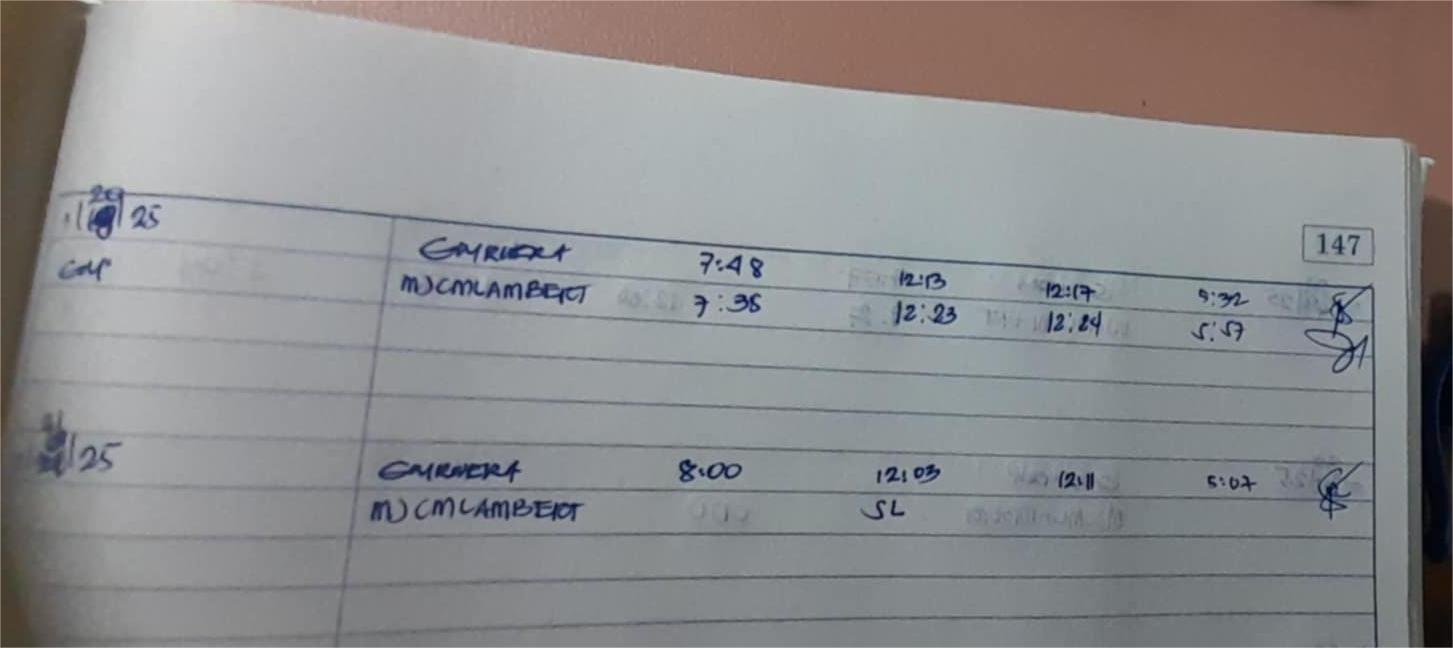 147
20
25
GMRIVERA 7:48 12:13 12:17 5:32
MJCMLAMBERT 7:38 12:23 12:24 5:57
21
25
GMRIVERA 8:00 12:03 12:11 5:07
MJCMLAMBERT SL